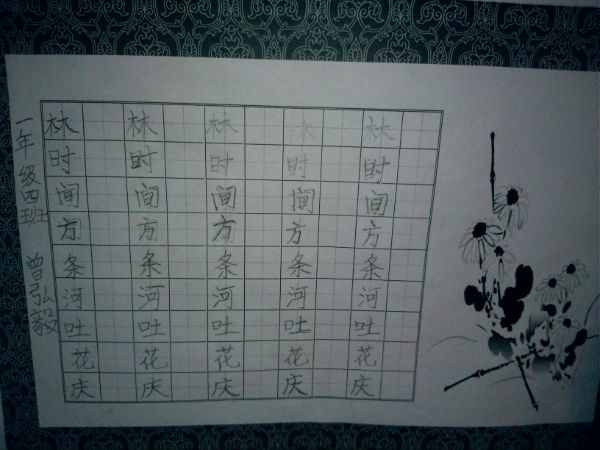 一年级四班 曾弘毅
林 林 林 林 林
时 时 时 时 时
间 间 间 间 间
方 方 方 方 方
条 条 条 条 条
河 河 河 河 河
吐 吐 吐 吐 吐
花 花 花 花 花
庆 庆 庆 庆 庆